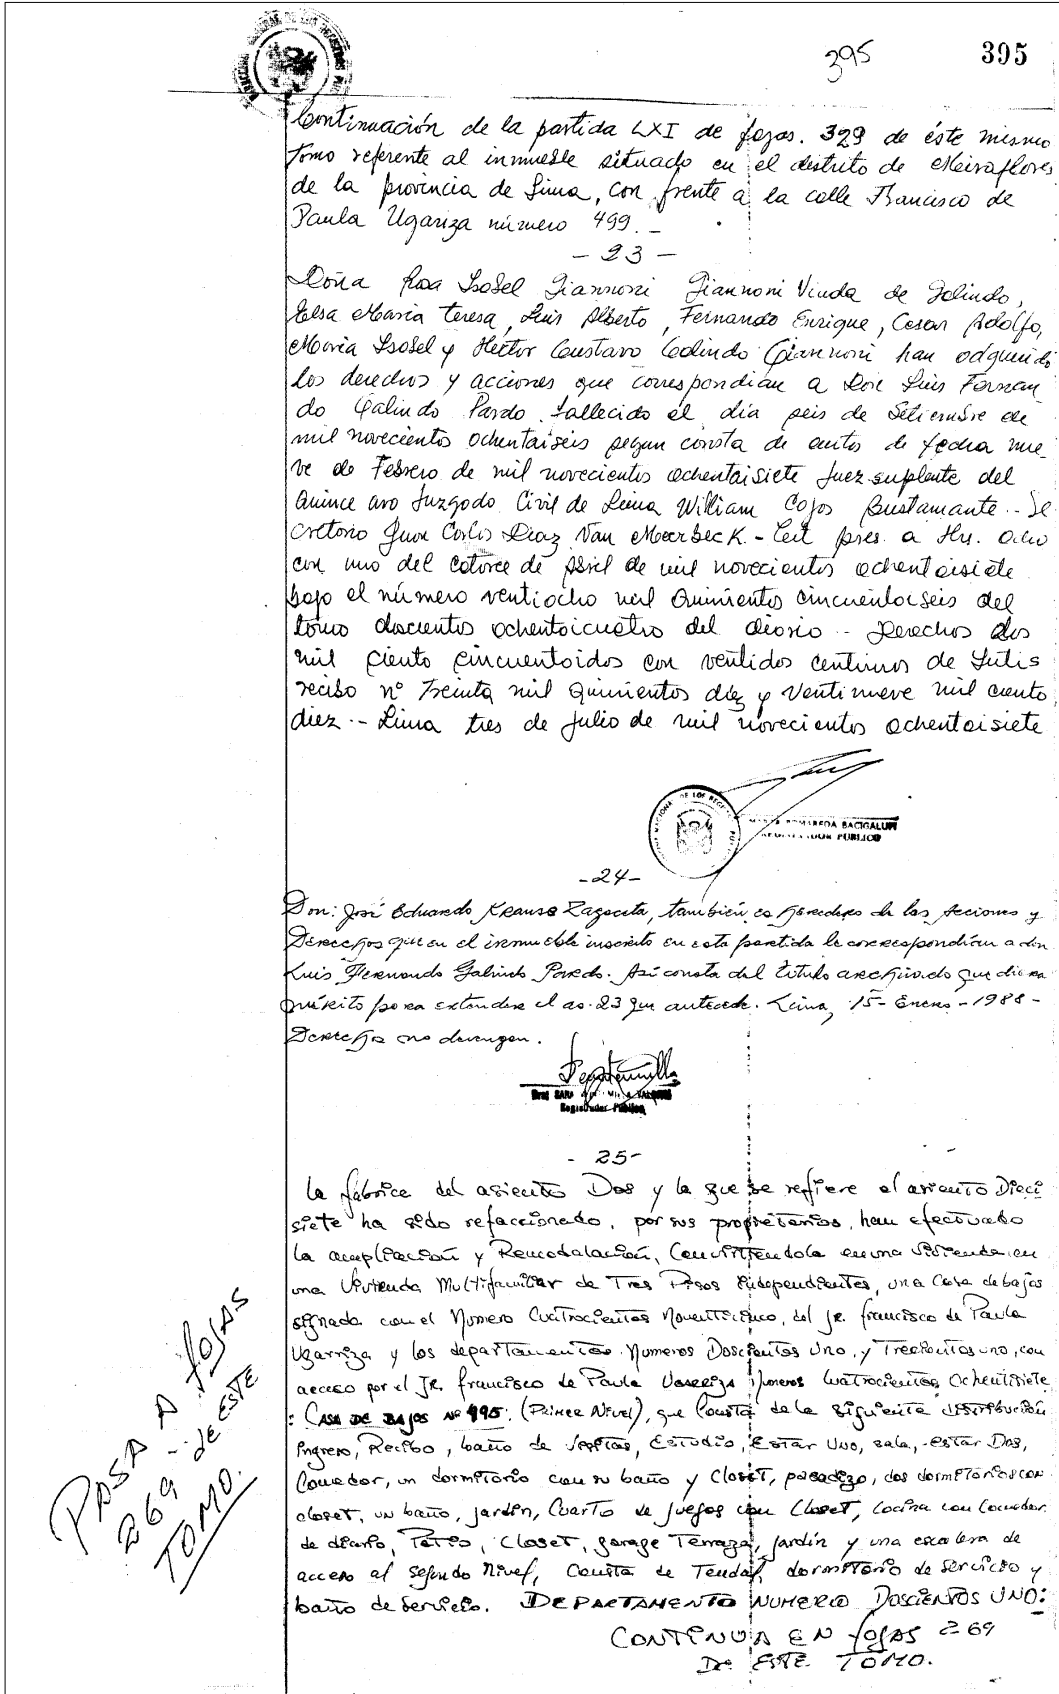 395 395
Continuación de la partida LXI de fojas. 329 de éste mismo
Tomo referente al inmueble situado en el distrito de Miraflores
de la provincia de Lima, con frente a la calle Francisco de
Paula Ugariza número 499. _
- 23 -
Doña Rosa Isabel Giannoni Giannoni Viuda de Galindo,
Elsa Maria Teresa, Luis Alberto, Fernando Enrique, Cesar Adolfo,
Maria Isabel y Hector Gustavo Galindo Giannoni han adquirido
los derechos y acciones que correspondian a Don Luis Fernan
do Galindo Pardo fallecido el dia seis de Setiembre de
mil novecientos ochentaiseis segun consta de autos de fecha nue_
ve de Febrero de mil novecientos ochentaisiete Juez suplente del
Quince avo Juzgado Civil de Lima William Cojos Bustamante - Se
cretario Juan Carlos Diaz Van Meerbeck. - pres. a Hrs. ocho
con uno del catorce de Abril de mil novecientos ochentaisiete
bajo el número ventiocho mil Quinientos cincuentaiseis del
tomo doscientos ochentaicuatro del diario - Derechos dos
mil ciento cincuentaidos con ventidos centimos de Intis
recibo nº Treinta mil quinientos diez y Ventinueve mil ciento
diez - Lima tres de julio de mil novecientos ochentaisiete
BACIGALUPI
REGISTRADOR PUBLICO
-24-
Don: José Eduardo Krause Zagaceta, también es heredero de las Acciones y
Derechos que en el inmueble inscrito en esta partida le correspondían a don
Luis Fernando Galindo Pardo. Así consta del título archivado que diera
mérito para extender el as. 23 que antecede. Lima, 15- Enero - 1988 -
Derechos no devengan.
Registrador Público
- 25-
la fábrica del asiento Dos y la que se refiere el asiento Dieci
siete ha sido refaccionado, por sus propietarios, han efectuado
la ampliación y Remodelación, Convirtiendola en una Vivienda en
una Vivienda Multifamiliar de Tres Pisos Independientes, una Casa de bajos
signada con el Numero Cuatrocientos Noventicinco, del Jr. francisco de Paula
Ugarriza y los departamentos Numeros Doscientos Uno, y Trecientos uno, con
acceso por el Jr. francisco de Paula Numeros Cuatrocientos Ochentisiete
: CASA DE BAJOS Nº 495: (Primer Nivel), que Consta de la siguiente distribución
Ingreso, Recibo, baño de Visitas, Estudio, Estar Uno, sala, estar Dos,
Comedor, un dormitorio con su baño y Closet, pasadizo, dos dormitorios con
closet, un baño, jardin, Cuarto de juegos con Closet, Cocina con Comedor
de diario, Patio, Closet, garage Terraza, jardin y una escalera de
acceso al segundo Nivel, Consta de Tendal, dormitorio de servicio y
baño de servicio. DEPARTAMENTO NUMERO DOSCIENTOS UNO:
CONTINUA EN fojas 269
DE ESTE TOMO.
PASA A FOJAS
269 - DE ESTE
TOMO.